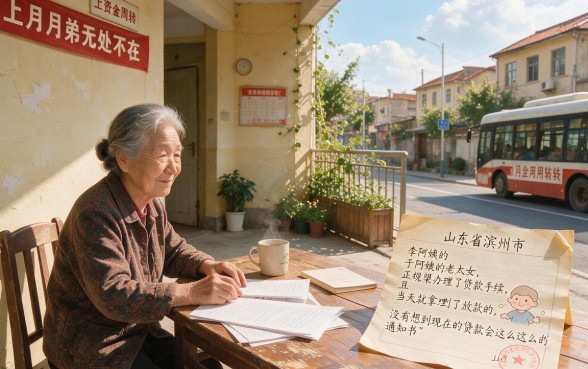 上资金周转
上月月弟无处不在
月金周周转转
山东省滨州市
李阿姨的
于阿姨的老太女,
正规渠办理了贷款手续,
且
当天就拿理了放款的,
没有想到现在的贷款会这么这么的
通知书"